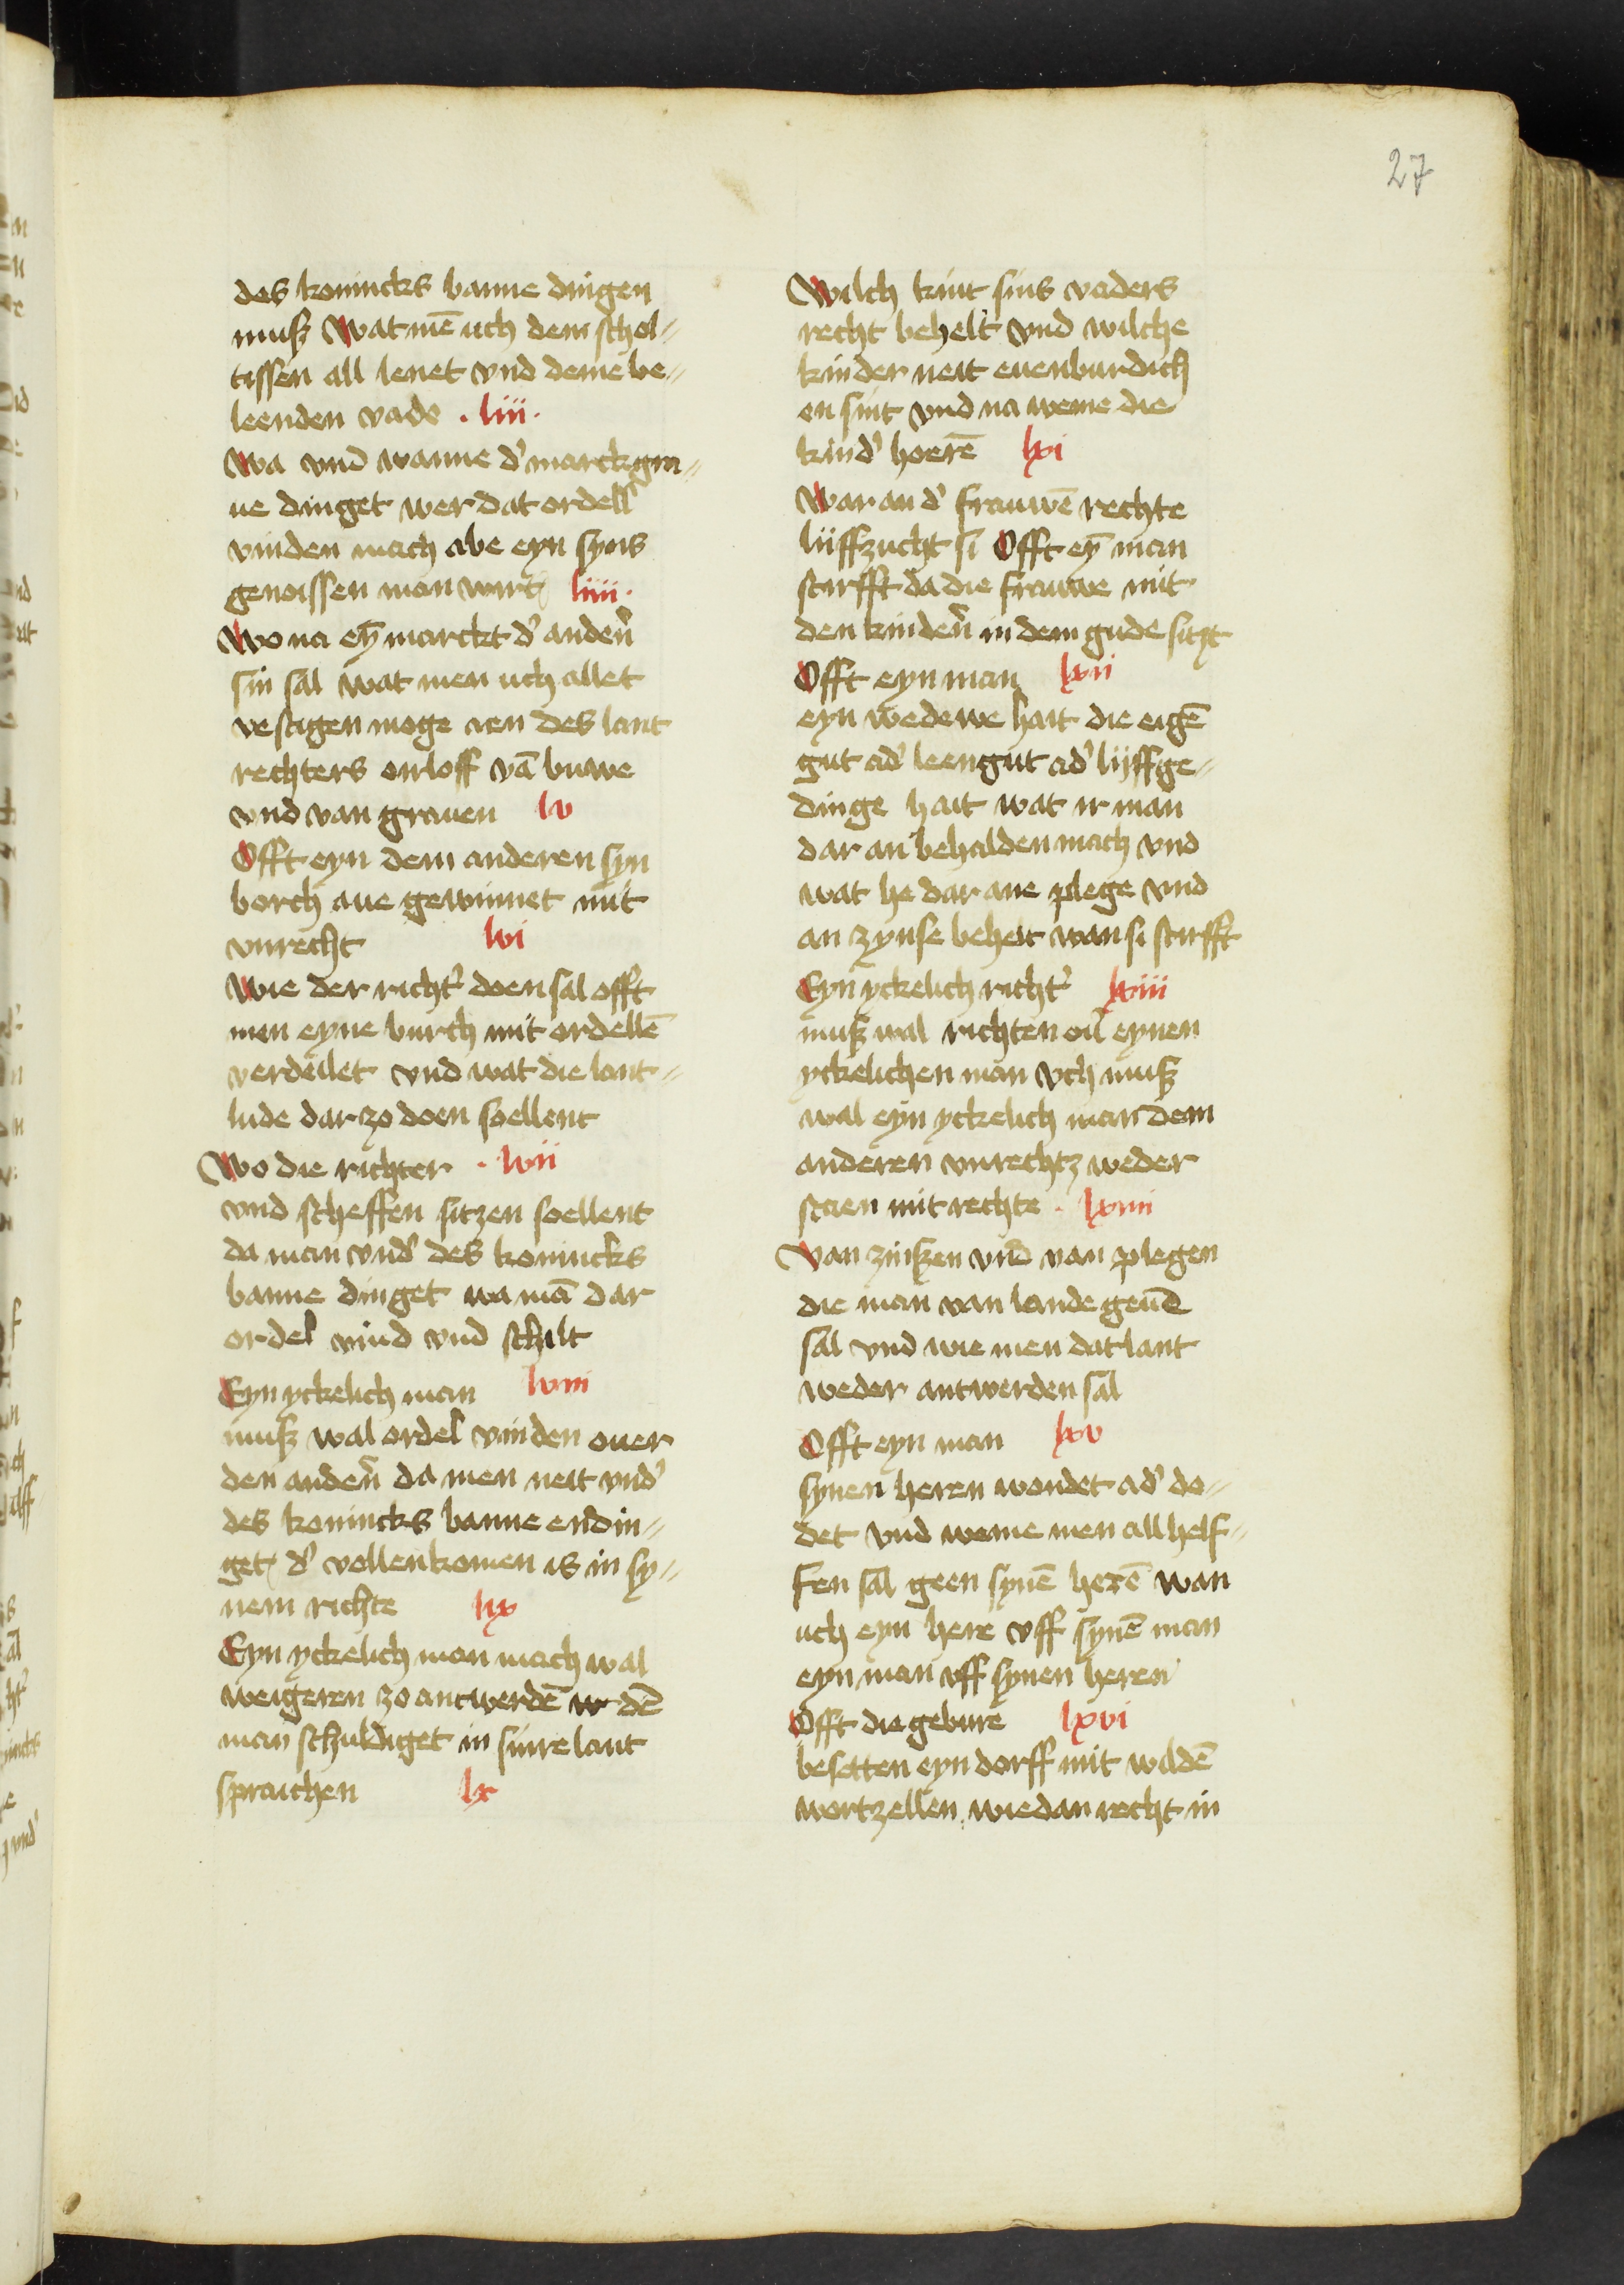 27
des konincks banne dingen
muß Wat mē uch dem schol-
tissen all lenet vnd deme be-
leenden vade . liii .
Wa vnd wanne d' marckgra-
ue dinget wer dat ordell
vinden mach abe eyn syns
genoissen man wirt liiii .
Wo na eȳ marckt d' anderñ
sin sal wat men uch allet
vestigen moge aen des lant
rechters orloff vā buwe
vnd van grauen lv
Offt eyn dem anderen syn
borch aue gewinnet mit
vnrecht lvi
Wie der richt' doen sal offt
men eyne burch mit ordellē
verdeilet vnd wat die lant-
lude dar zo doen soellent
Wo die richter . lvii
vnd scheffen sitzen soellent
da man vnd' des konincks
banne dinget wa mā dar
ordel vind vnd schilt
Eyn yckelich man lviii
muß wal ordel vinden ouer
den anderñ da men neit vnd'
des konincks banne en din-
get d' vollenkomen is in sy-
nem richte lix
Eyn yckelich man mach wal
weigeren zo antwerdē w dē
man schuldiget in sinre lant
spraichen lx
Wilch kint sins vaders
recht behelt vnd wilche
kinder neit euenburdich
en sint vnd na weme die
kind' hoerē lxi
War an d' frauwē rechte
liiffzucht si Offt eȳ man
stirfft da die frauwe mit
den kinderñ in dem gude sitzt
Offt eyn man lxii
eyn wedewe hait die eigē
gut ad' leengut ad' lijffge-
dinge hait wat ir man
dar an behalden mach vnd
wat he dar ane plege vnd
an zynse beheit wan si stirfft
Eyn yckelich richt' lxiii
muß wal richten ou' eynen
yckelichen man vch muß
wal eyn yckelich man dem
anderen vnrechtz weder
staen mit rechte . lxiiii
Van zinßen vnd van plegen
die man van lande geuē
sal vnd wie men dat lant
weder antwerden sal
Offt eyn man lxv
synen heren wondet ad' do-
det vnd weme men all helf-
fen sal geen synē herē wan
uch eyn here vff synē man
eyn man vff synen heren
Offt die gebure lxvi
besetten eyn dorff mit wildē
wortzellen wie dan recht in